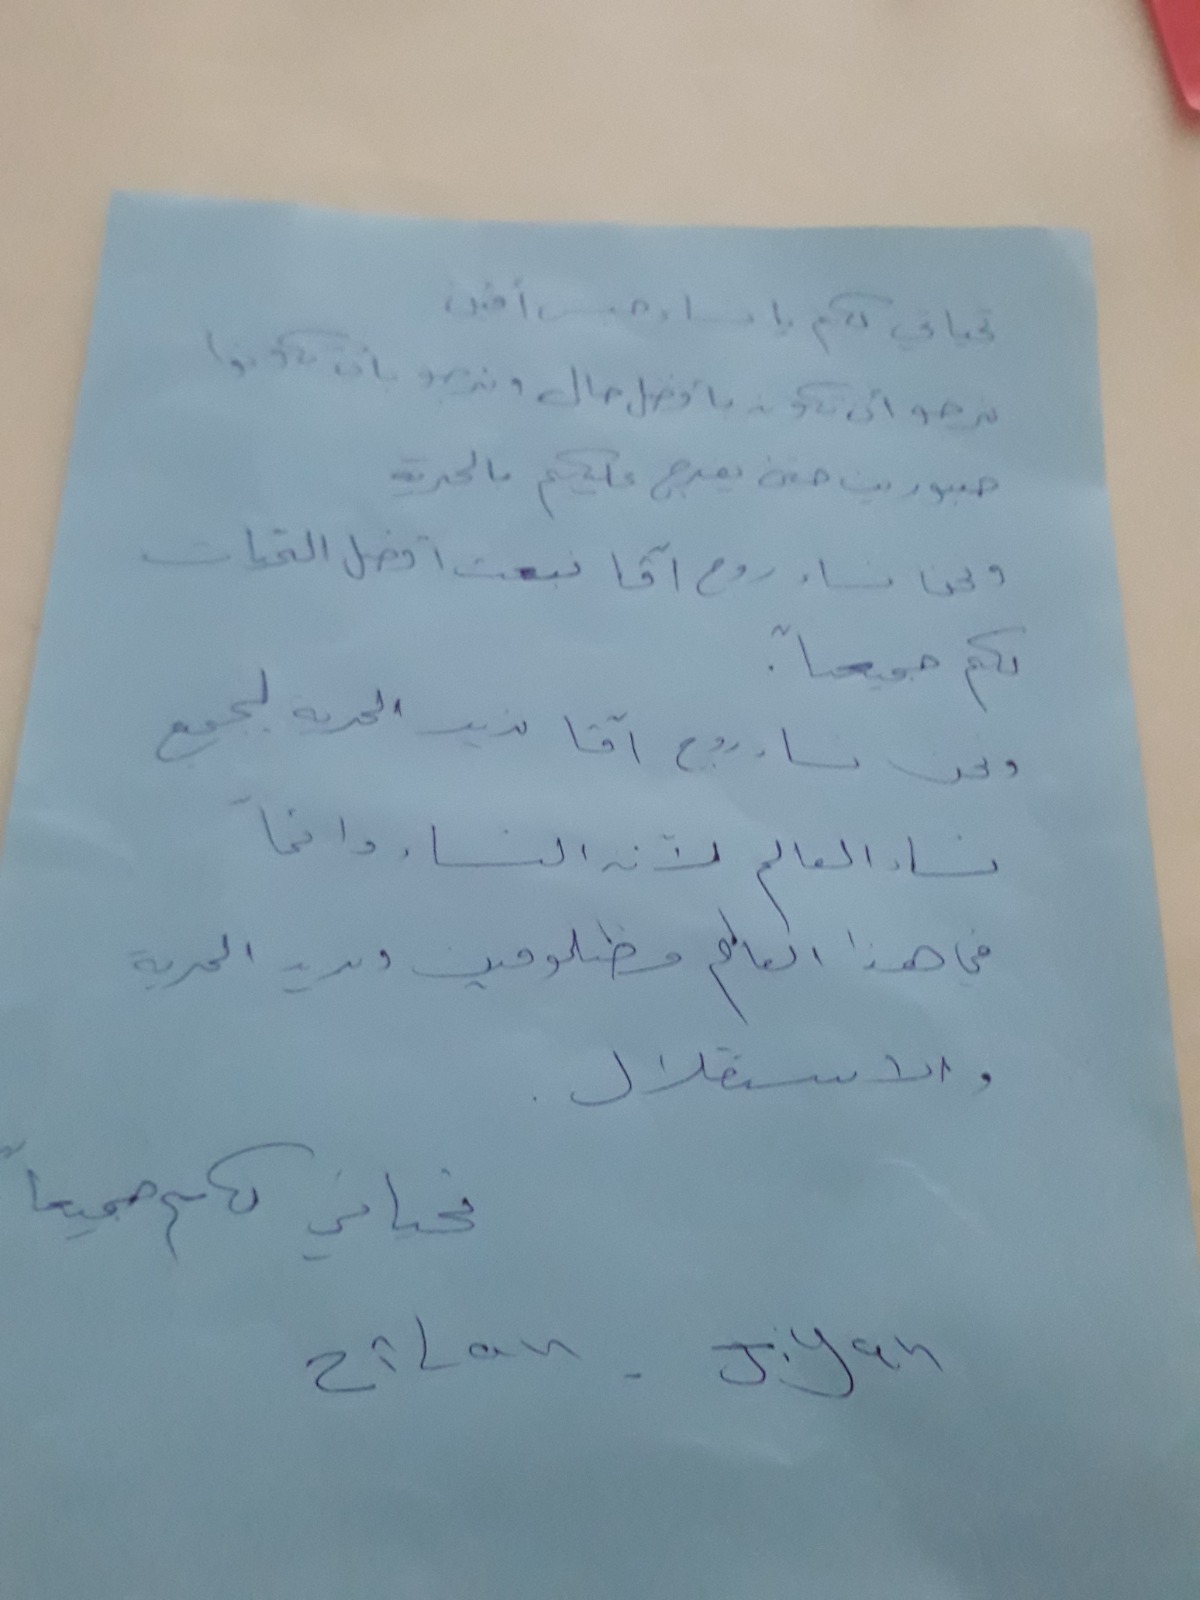 تحياتي لكم يا نساء حبس أفين
نرجو أن تكونه بأفضل حال ونرجو بأن تكونوا
صبورين حتى يفرج عليكم بالحرية
ونحن نساء روج آفا نبعث أفضل التحيات
لكم جميعاً.
ونحن نساء روج آفا نريد الحرية لجميع
نساء العالم لأنه النساء دائماً
في هذا العالم مظلومين ونريد الحرية
والاستقلال.
تحياتي لكم جميعاً
zilan - Jiyan